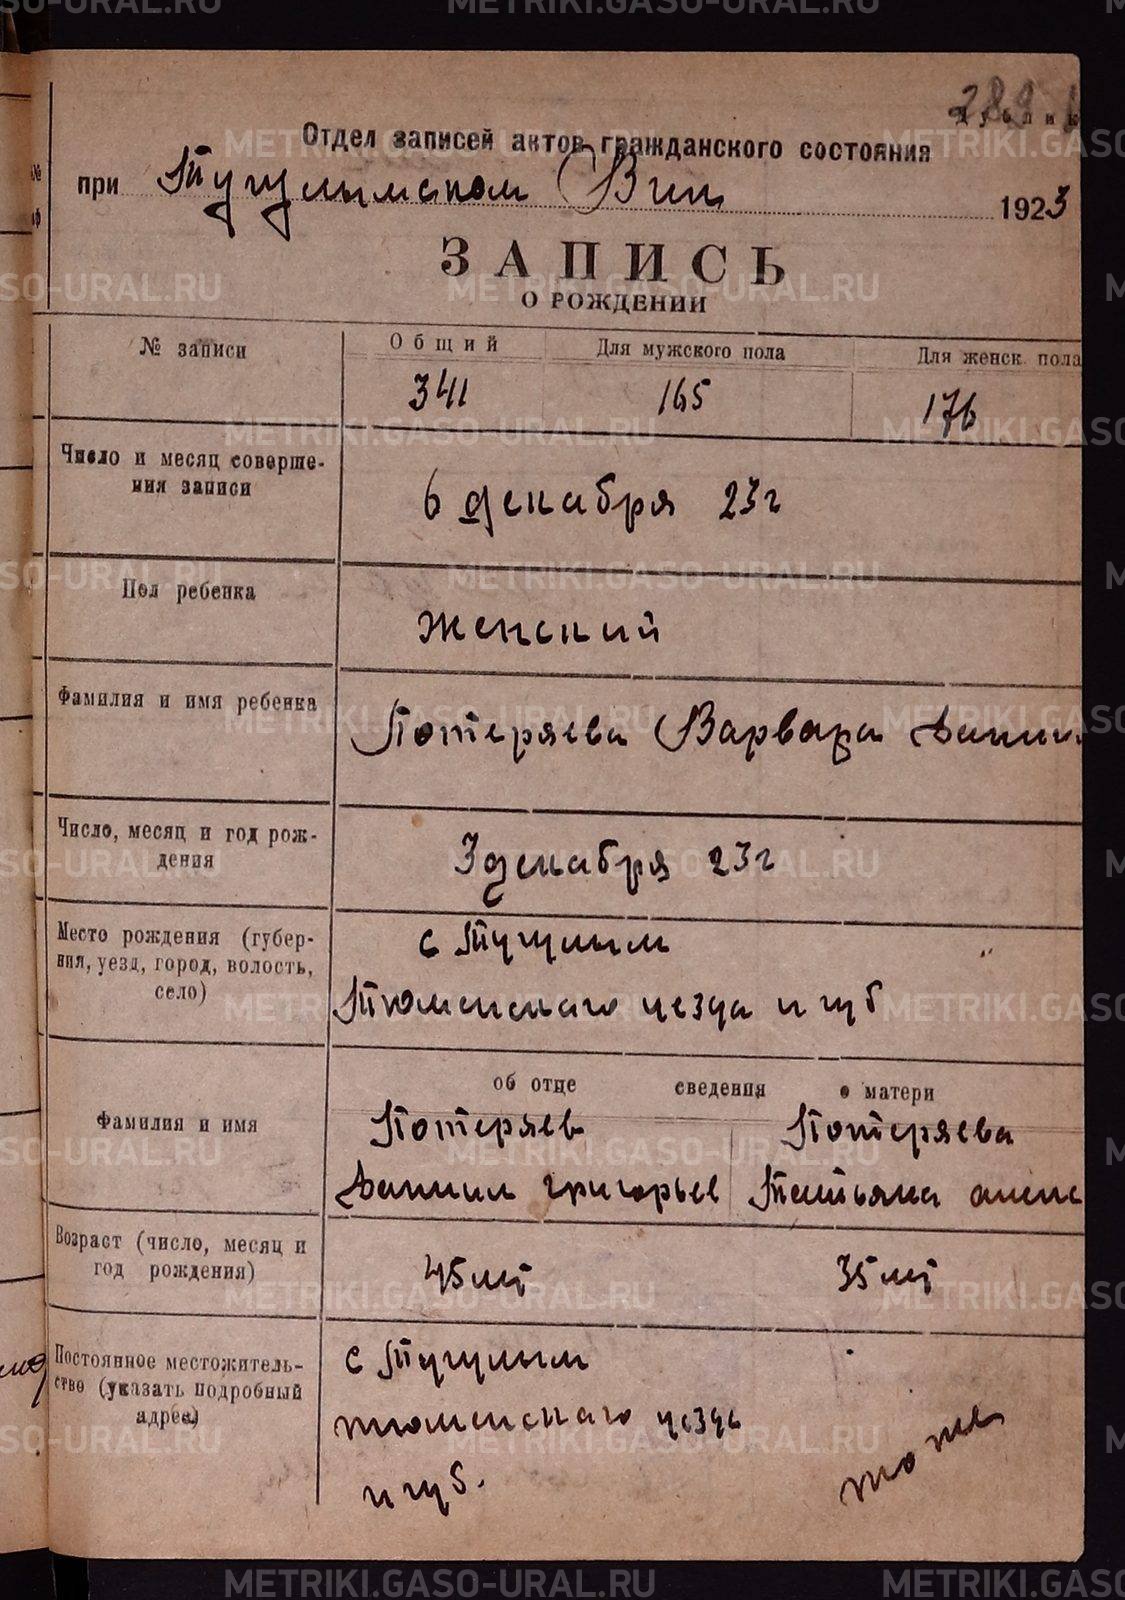 METRIKI.GASO-URAL.RU
289
Отдел записей актов гражданского состояния
при Тугулымском Вик 1923
ЗАПИСЬ
О РОЖДЕНИИ
№ записи Общий Для мужского пола Для женск. пола
341 165 176
Число и месяц соверше-
ния записи
6 декабря 23 г
Пол ребенка
женский
Фамилия и имя ребенка
Потеряева Варвара Данил
Число, месяц и год рож-
дения
3 декабря 23 г
Место рождения (губер-
ния, уезд, город, волость,
село)
с Тугулым
Тюменского уезда и губ
об отце сведения о матери
Фамилия и имя
Потеряев Потеряева
Даниил Григорьев Татьяна алекс
Возраст (число, месяц и
год рождения)
45 лет 35 лет
Постоянное местожитель-
ство (указать подробный
адрес)
с Тугулым
тюменского уезда
и губ.
тоже